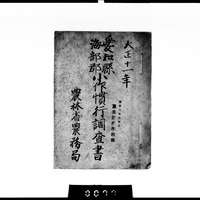 大正十一年
愛知縣
海部郡
小作慣行調査書
農林省農務局
0077